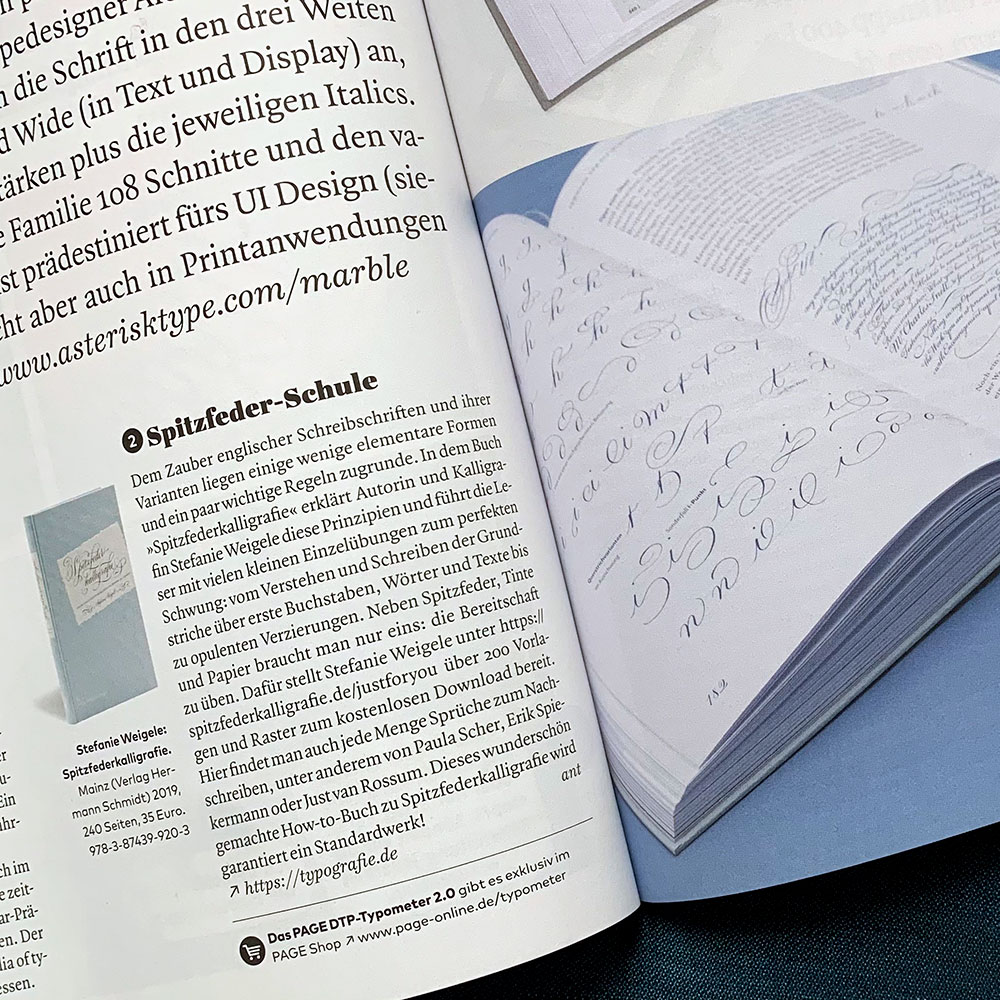 pedesigner
die Schrift in den drei Weiten
d Wide (in Text und Display) an,
tärken plus die jeweiligen Italics.
e Familie 108 Schnitte und den va-
st prädestiniert fürs UI Design (sie-
ht aber auch in Printanwendungen
www.asterisktype.com/marble
2 Spitzfeder-Schule
Dem Zauber englischer Schreibschriften und ihrer
Varianten liegen einige wenige elementare Formen
und ein paar wichtige Regeln zugrunde. In dem Buch
»Spitzfederkalligrafie« erklärt Autorin und Kalligra-
fin Stefanie Weigele diese Prinzipien und führt die Le-
ser mit vielen kleinen Einzelübungen zum perfekten
Schwung: vom Verstehen und Schreiben der Grund-
striche über erste Buchstaben, Wörter und Texte bis
zu opulenten Verzierungen. Neben Spitzfeder, Tinte
und Papier braucht man nur eins: die Bereitschaft
zu üben. Dafür stellt Stefanie Weigele unter https://
spitzfederkalligrafie.de/justforyou über 200 Vorla-
gen und Raster zum kostenlosen Download bereit.
Hier findet man auch jede Menge Sprüche zum Nach-
schreiben, unter anderem von Paula Scher, Erik Spie-
kermann oder Just van Rossum. Dieses wunderschön
gemachte How-to-Buch zu Spitzfederkalligrafie wird
garantiert ein Standardwerk! ant
↗ https://typografie.de
Spitzfeder
kalligrafie
Stefanie Weigele:
Spitzfederkalligrafie.
Mainz (Verlag Her-
mann Schmidt) 2019,
240 Seiten, 35 Euro.
978-3-87439-920-3
Das PAGE DTP-Typometer 2.0 gibt es exklusiv im
PAGE Shop ↗ www.page-online.de/typometer
ch im
e zeit-
ar-Prä-
en. Der
dia of ty-
essen.
Sir
182